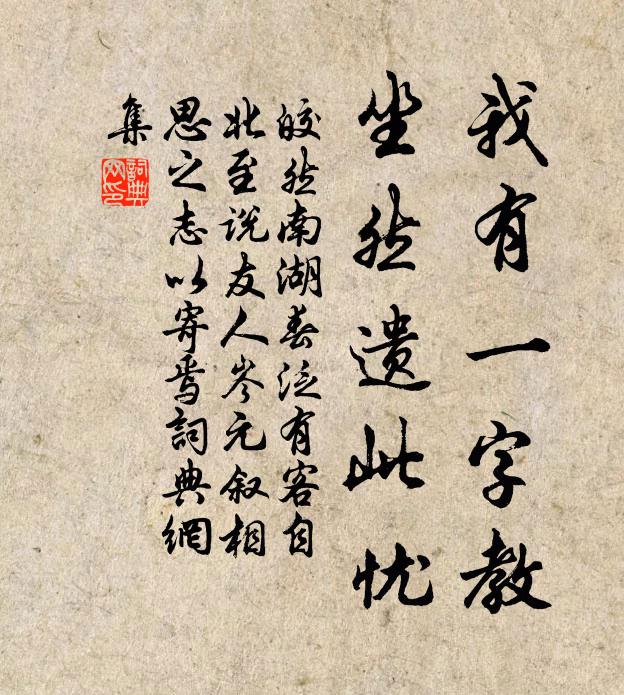 我有一字教
坐然遗此忧
皎然南湖春泛有客自
北至说友人岑元叙相
思之志以寄焉詞典網
集
詞典网印